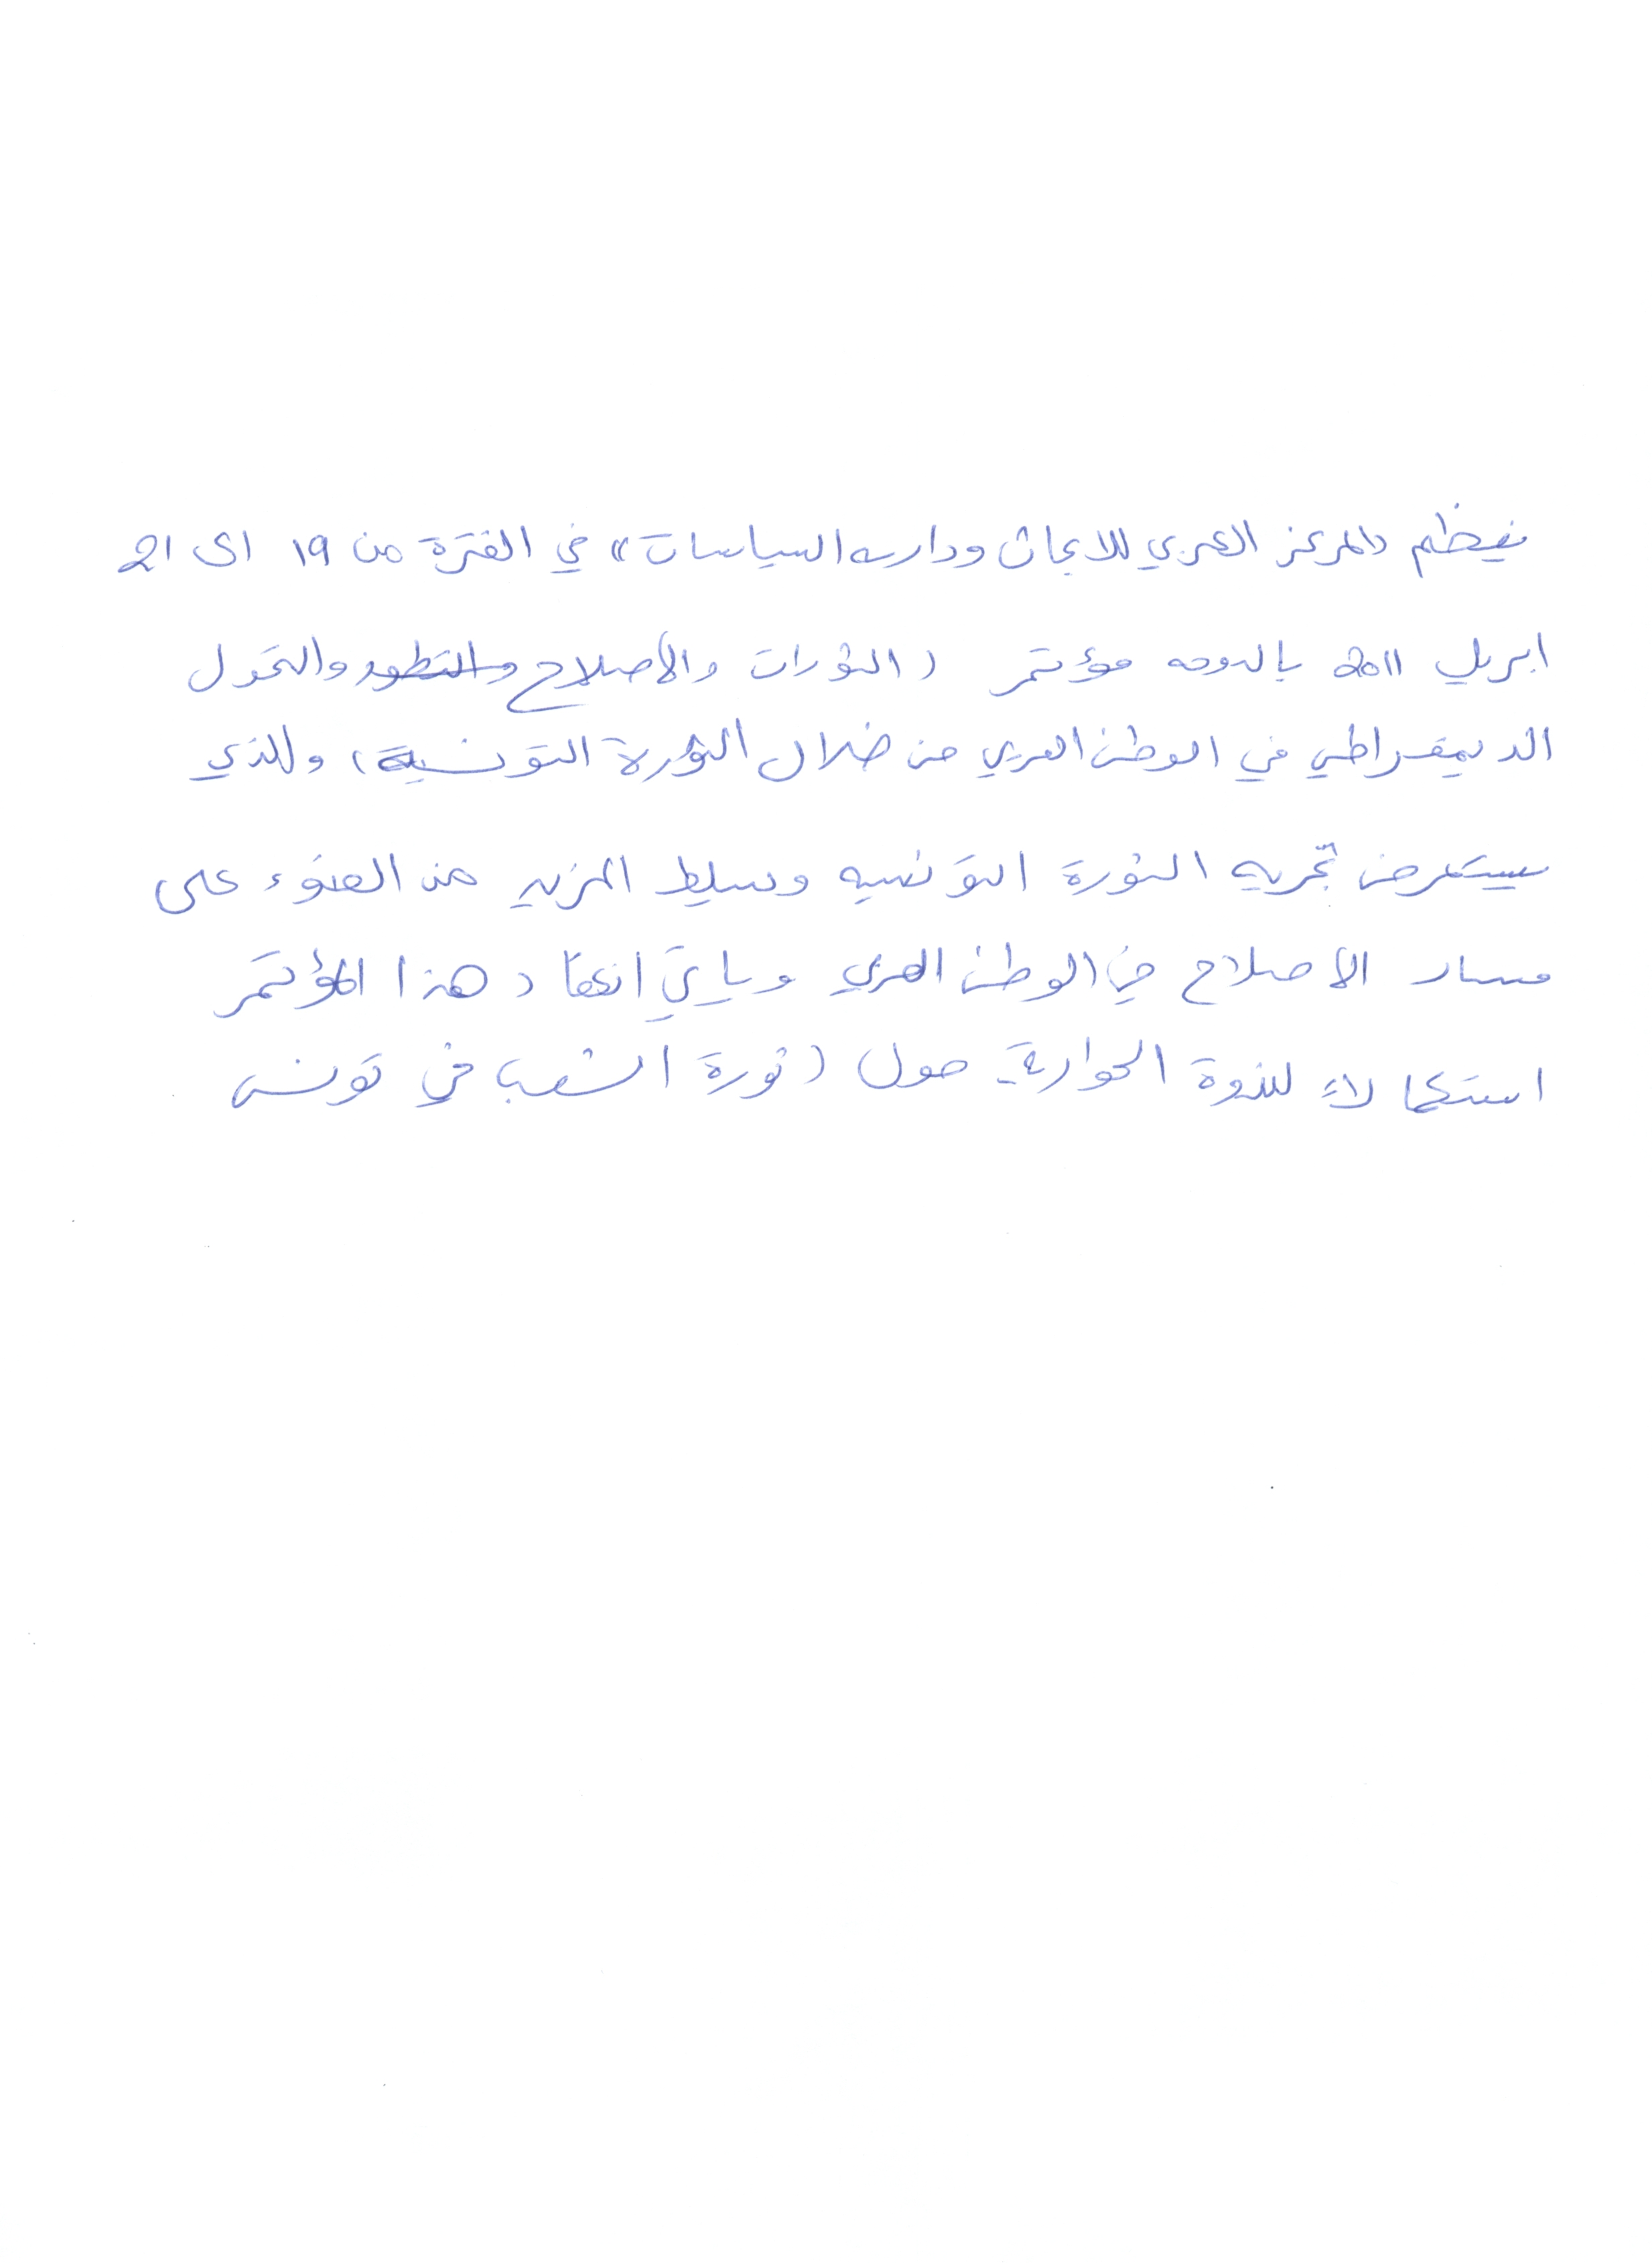 ينظم "المركز العربي للابحاث ودارسه السياسات" في الفترة من ١٩ الى 21
ابريل 2011 بالدوحه مؤتمر (الثورات والاصلاح والتحول
الديمقراطي في الوطن العربي من خلال الثورة التونسية) والذي
سيستعرض تجربه الثورة التونسيه وسيلط المزيد من الضوء على
مسار الاصلاح في الوطن العربي وياتي انعقاد هذا المؤتمر
استكمالاً للندوة الحوارية حول (ثورة الشعب في تونس